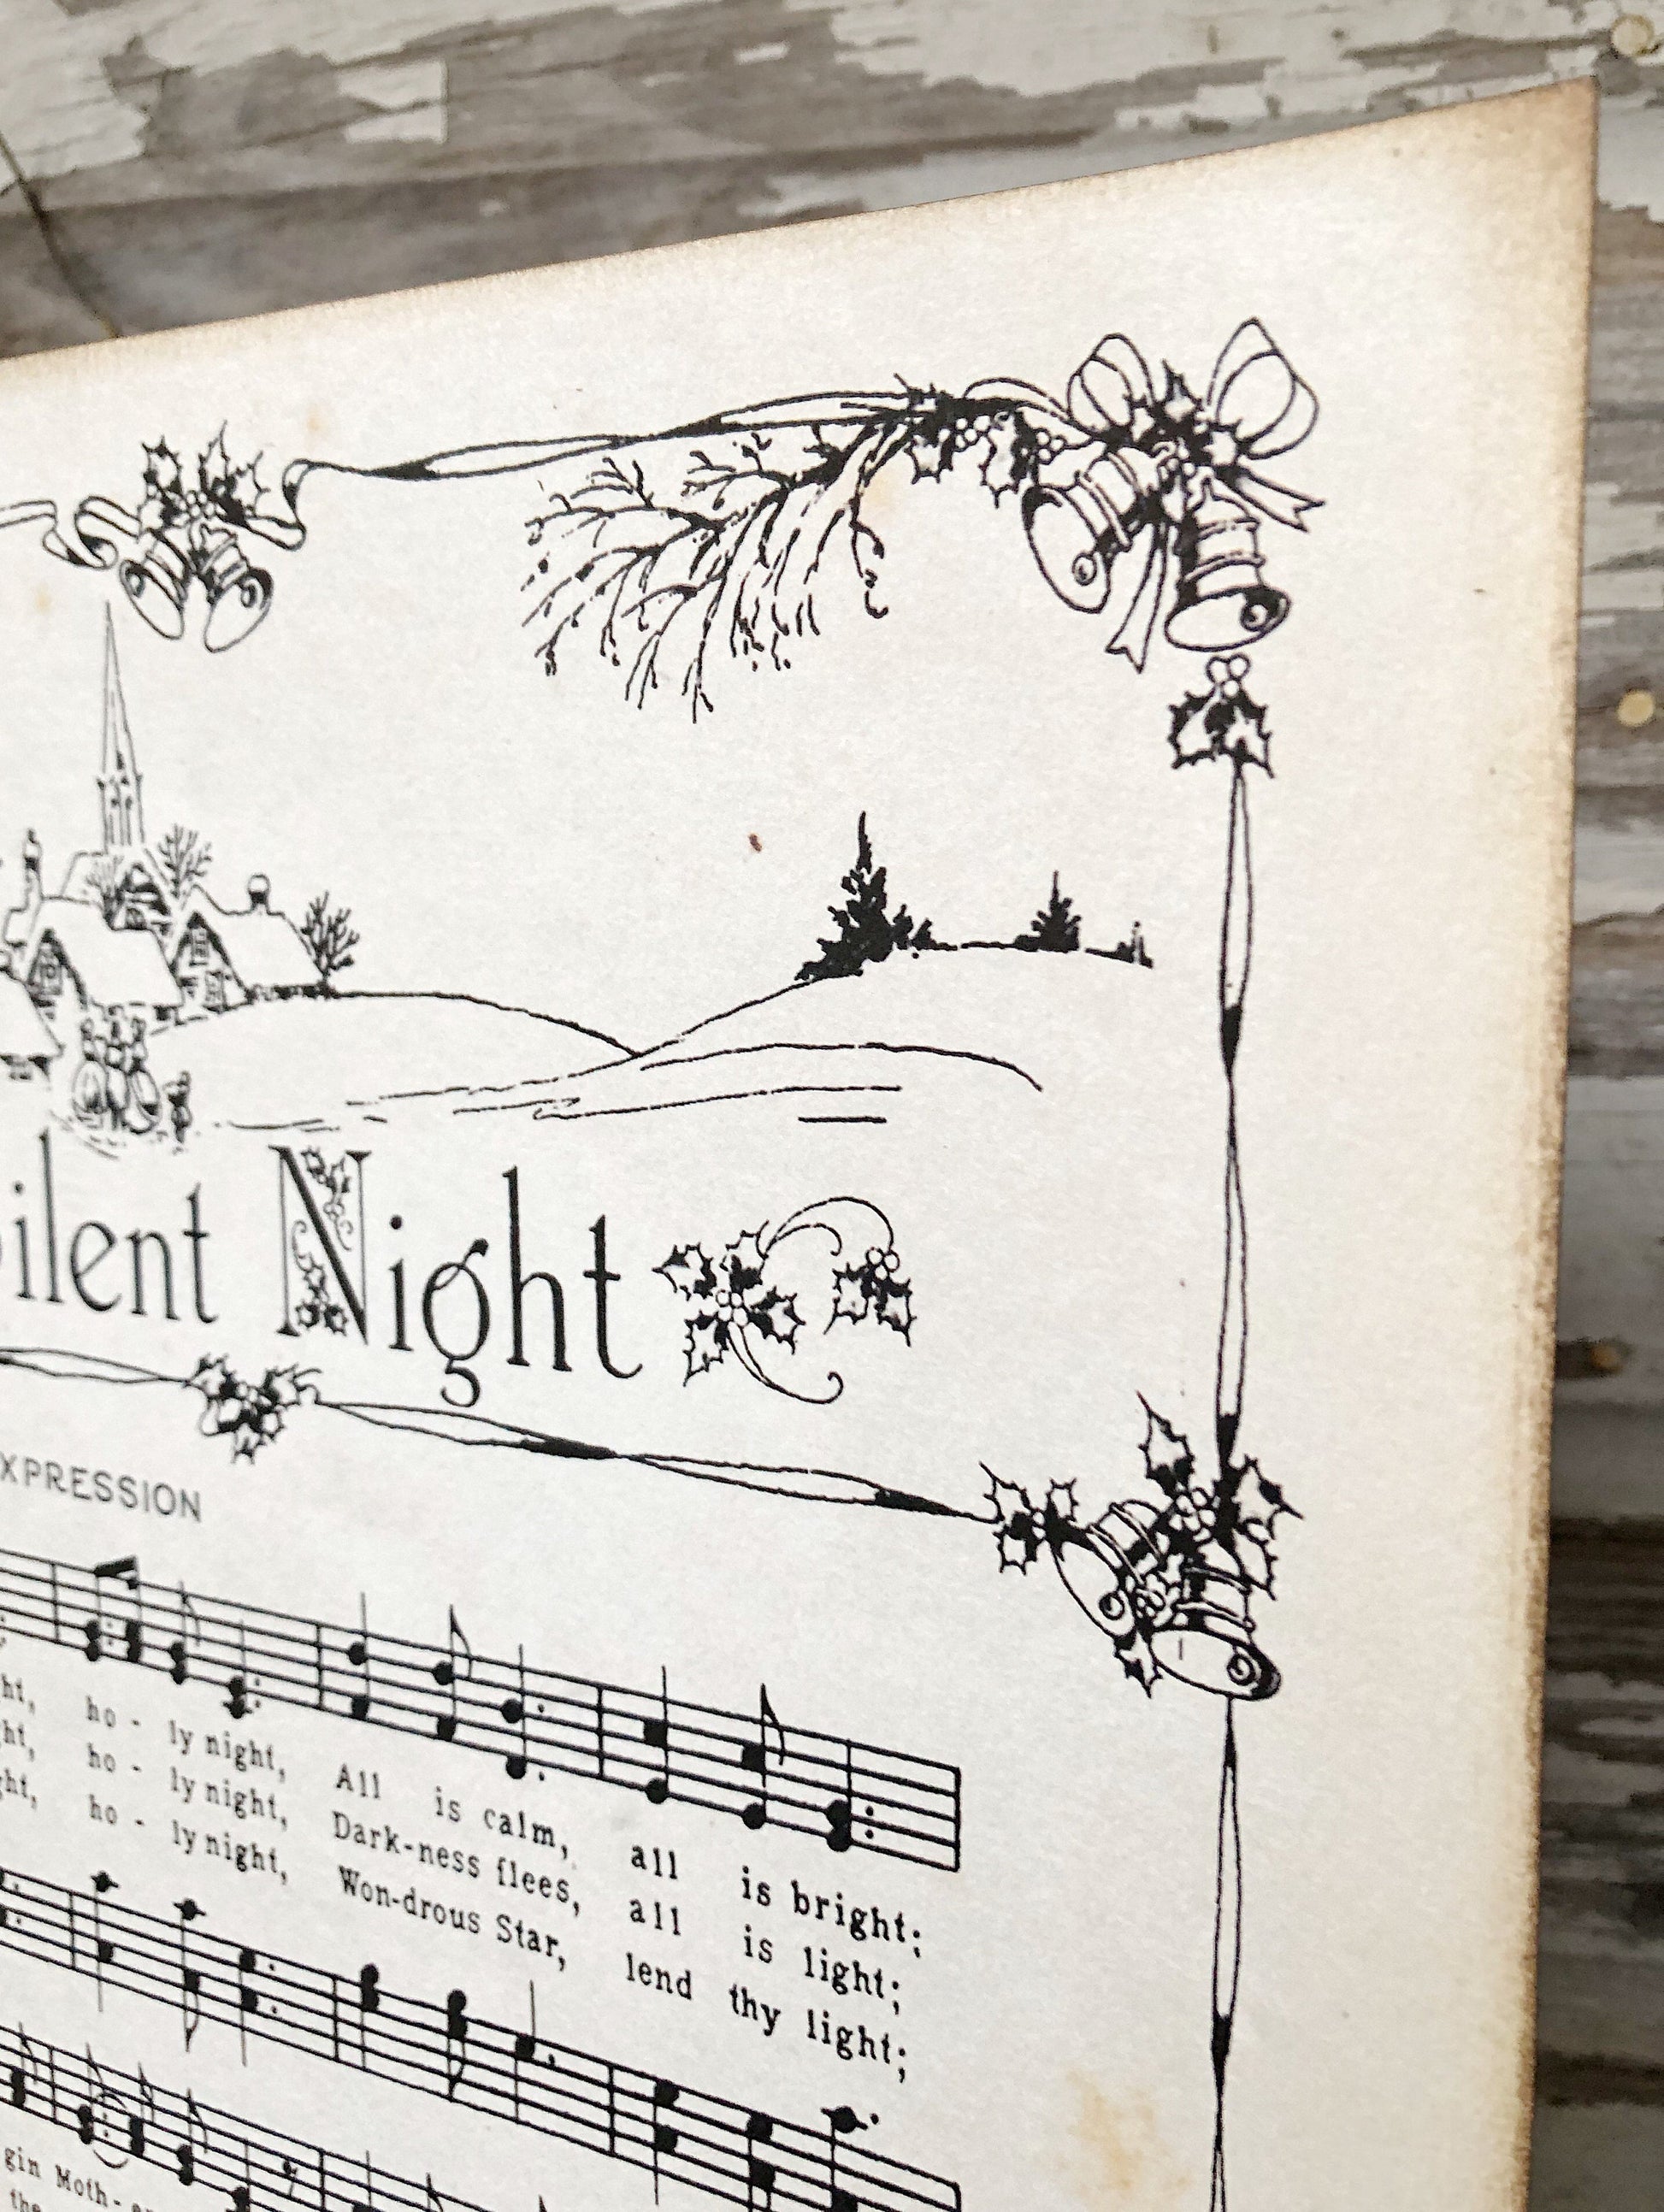 Silent Night
XPRESSION
ht, ho - ly night, All is calm, all is bright;
ght, ho - ly night, Dark-ness flees, all is light;
ght, ho - ly night, Won-drous Star, lend thy light;
gin Moth-
the